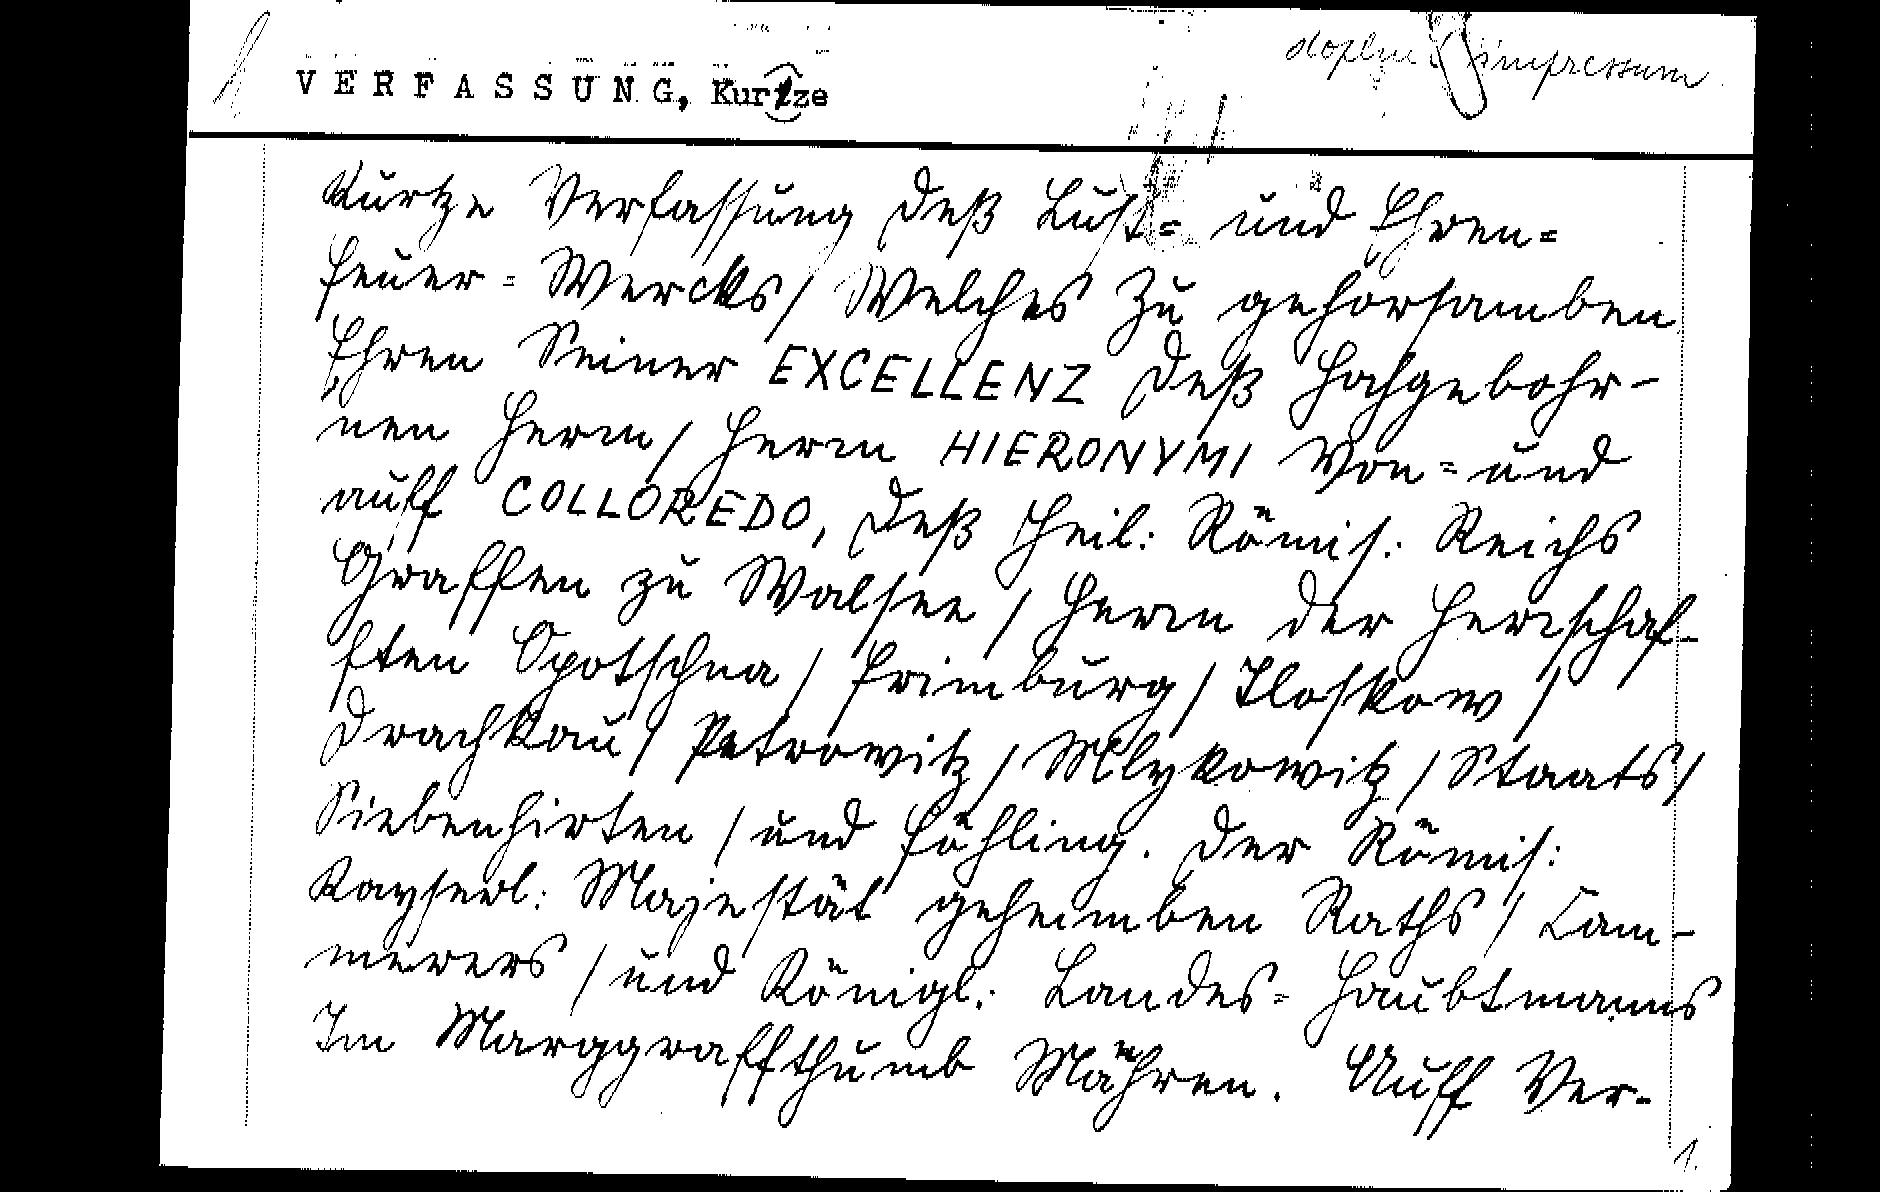 doplnit impressum
VERFASSUNG, Kurtze
Kurtze Verfassung deß Lust= und Ehren=
feuer=Wercks/ Welches zu gehorsamben
Ehren Seiner EXCELLENZ deß Hochgebohr-
nen Herrn/ Herrn HIERONYMI Von= und
auff COLLOREDO, deß Heil: Römis: Reichs
Graffen zu Walsee/ Herrn der Herrschaf-
ften Opotschna/ Frimburg/ Tloskow/
Drachkau/ Petrowitz/ Mlykowitz/ Staats/
Siebenhirten/ und Föhling. Der Römis:
Kayserl: Majestät geheimben Raths/ Cam-
merers/ und Königl: Landes= Haubtmanns
Im Marggraffthumb Mähren. Auff Ver-
1.